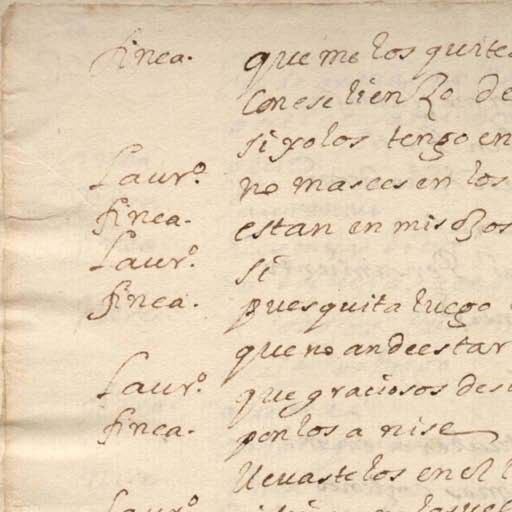 finea. que me los quites
Con ese lienzo de
si yo los tengo en
Laurº. no mas ees en los
finea. estan en mis ozos
Laurº. si
finea. pues quita luego
que no an de estar
Laurº. que graciosos
finea. ponlos a nise
llevastelos en el
Laurº.